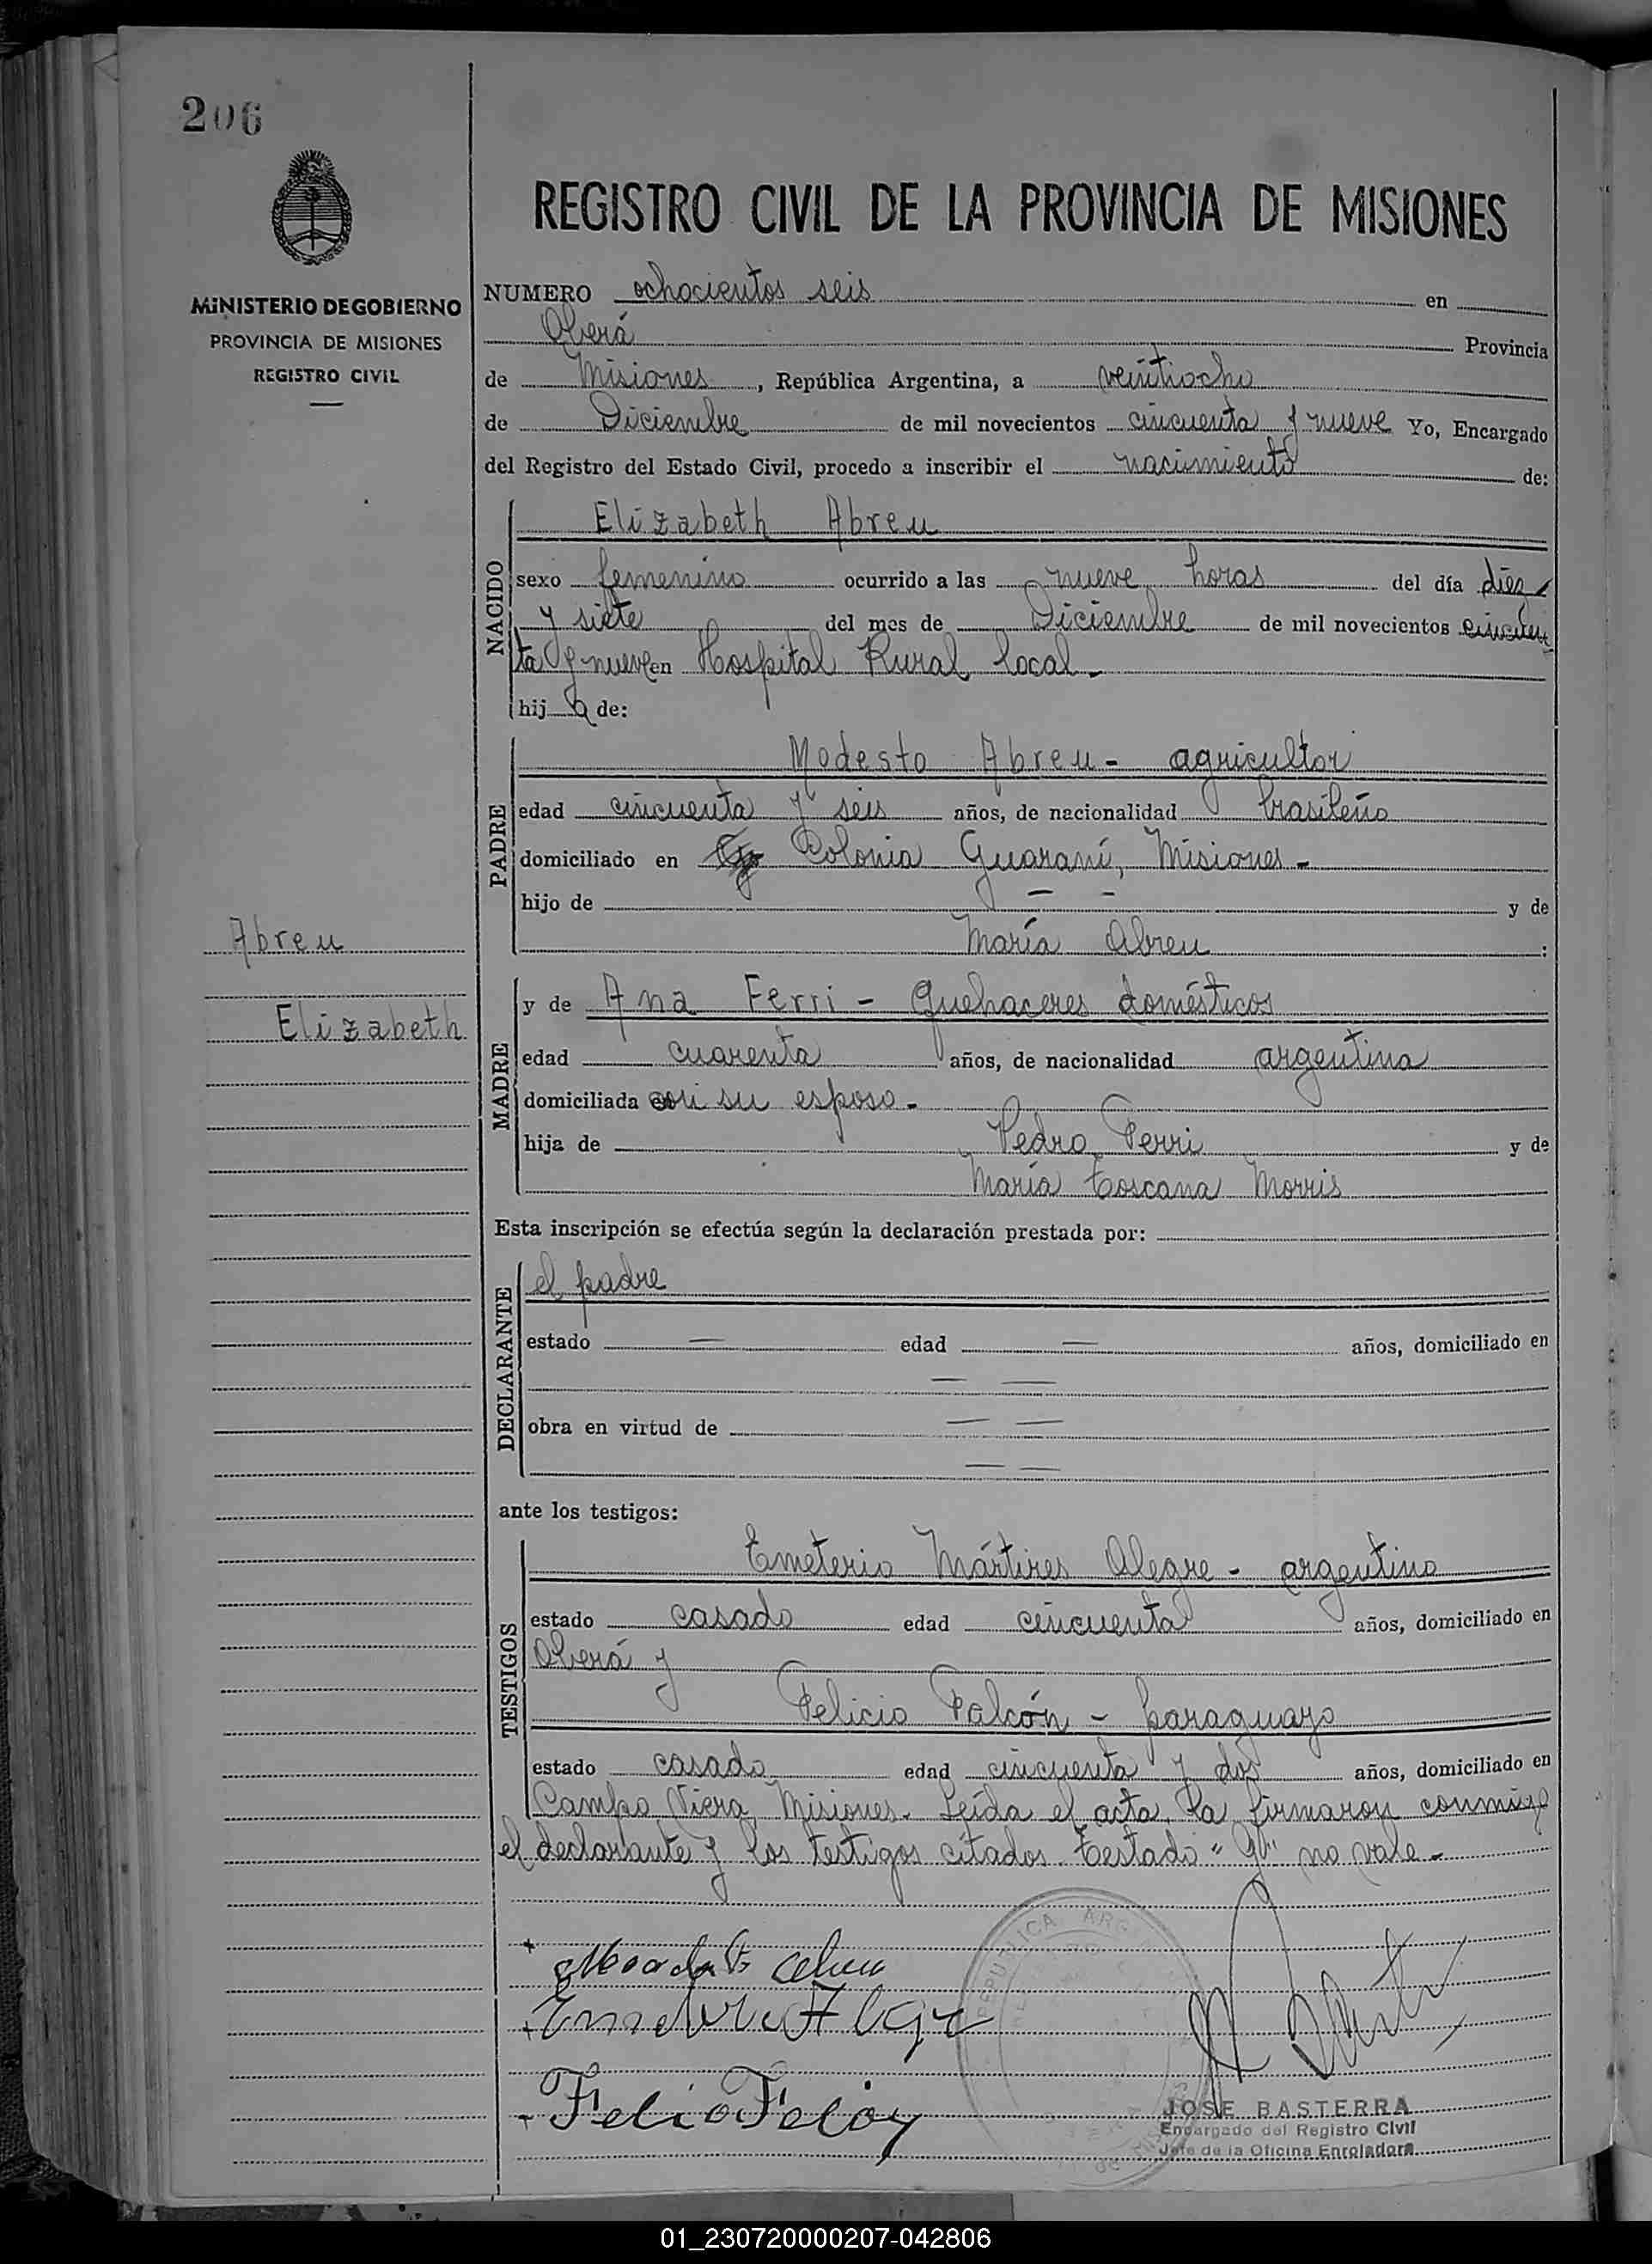 206
REGISTRO CIVIL DE LA PROVINCIA DE MISIONES
MINISTERIO DE GOBIERNO
PROVINCIA DE MISIONES
REGISTRO CIVIL
NUMERO ochocientos seis en
Oberá Provincia
de Misiones, República Argentina, a veintiocho
de Diciembre de mil novecientos cincuenta y nueve Yo, Encargado
del Registro del Estado Civil, procedo a inscribir el nacimiento de:
NACIDO
Elizabeth Abreu
sexo femenino ocurrido a las nueve horas del día diez
y siete del mes de Diciembre de mil novecientos cincuen
ta y nueve en Hospital Rural local.
hija de:
PADRE
Modesto Abreu - agricultor
edad cincuenta y seis años, de nacionalidad brasileño
domiciliado en Colonia Guaraní, Misiones -
hijo de — — y de
María Abreu :
Abreu
Elizabeth
MADRE
y de Ana Ferri - Quehaceres domésticos
edad cuarenta años, de nacionalidad argentina
domiciliada con su esposo -
hija de Pedro Ferri y de
María Toscana Morris
Esta inscripción se efectúa según la declaración prestada por:
DECLARANTE
el padre
estado — edad — años, domiciliado en
— —
obra en virtud de — —
— —
ante los testigos:
TESTIGOS
Emeterio Mártires Alegre - argentino
estado casado edad cincuenta años, domiciliado en
Oberá y
Felicio Falcón - paraguayo
estado casado edad cincuenta y dos años, domiciliado en
Campo Viera, Misiones. Leída el acta, la firmaron conmigo
el declarante y los testigos citados. Testado " " no vale -
REPUBLICA ARG
JOSE BASTERRA
Encargado del Registro Civil
Jefe de la Oficina Enroladora
01_230720000207-042806